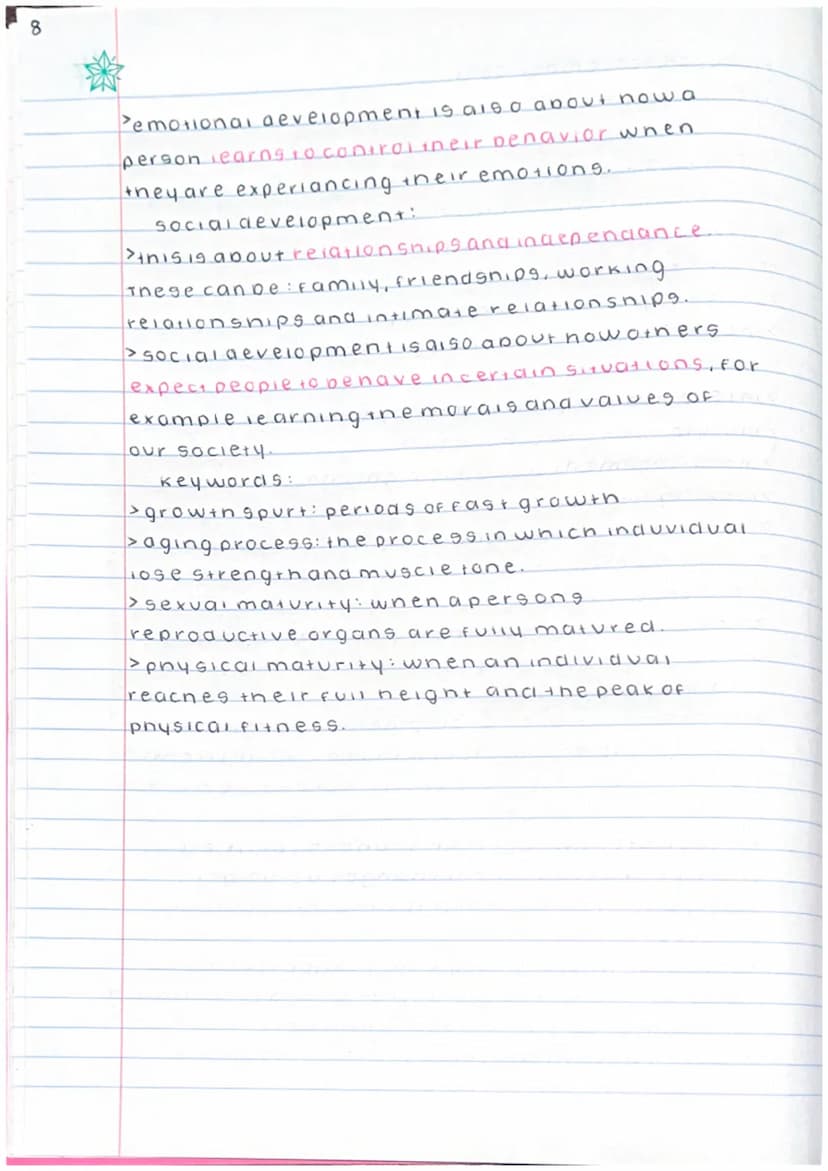 8
>emotional development is also about how a
person learns to control their behavior when
they are experiancing their emotions.
social development:
>this is about relationships and independance.
These can be: family, friendships, working
relationships and intimate relationships.
>social development is also about how others
expect people to behave in certain situations, for
example learning the morals and values of
our society.
keywords:
>growth spurt: periods of fast growth
>aging process: the process in which induvidual
lose strength and muscle tone.
>sexual maturity: when a persons
reproductive organs are fully matured.
>physical maturity: when an individual
reaches their full height and the peak of
physical fitness.